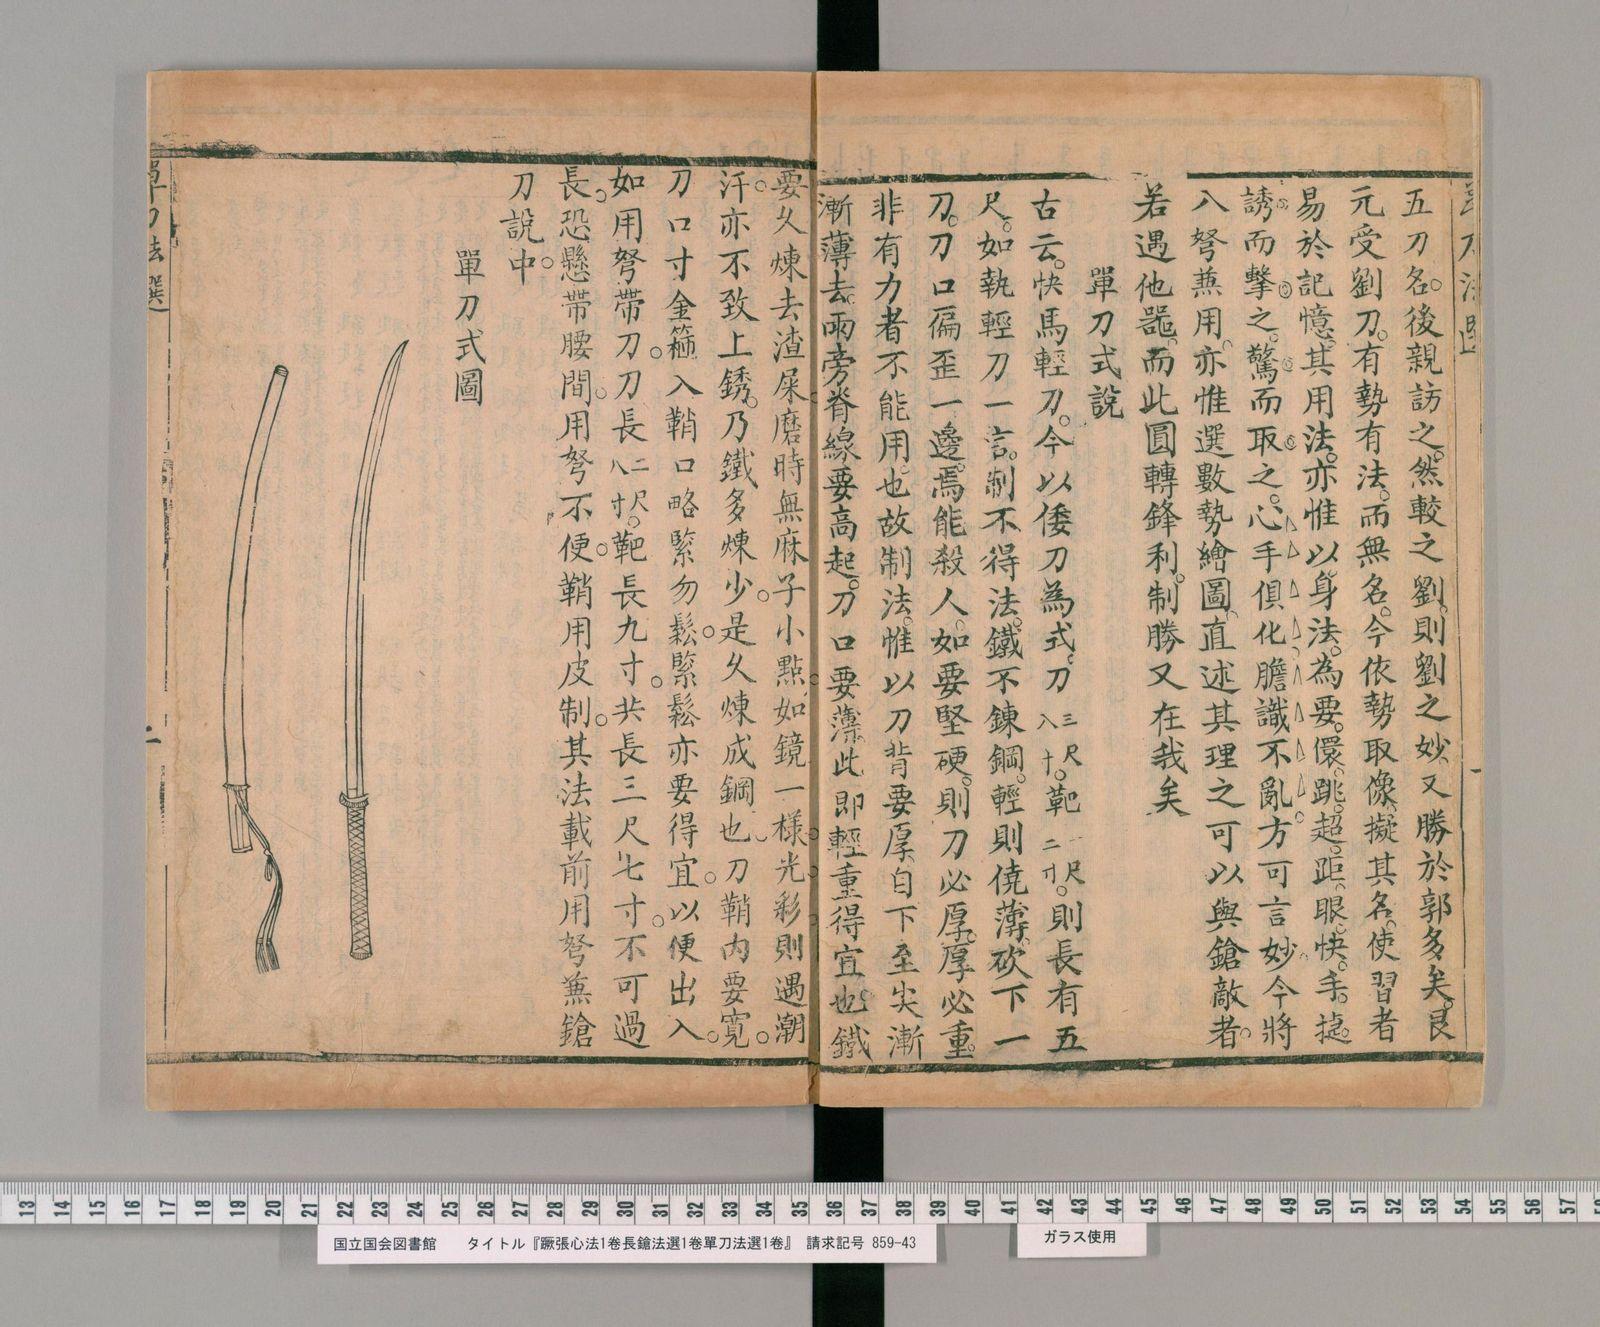 五刀名。後親訪之。然較之劉。則劉之妙。又勝於郭多矣。良
元受劉刀。有勢有法。而無名。今依勢取像。擬其名。使習者
易於記憶。其用法。亦惟以身法。為要。儇。跳。超。距。眼。快。手。㨗。
誘而擊之。驚而取之。心手俱化。膽識不亂。方可言妙。今將
八弩蕪用。亦惟選數勢繪圖。直述其理之可以與鎗敵者。
若遇他噐。而此圓轉鋒利。制勝又在我矣
單刀式說
古云。快馬輕刀。今以倭刀為式。刀三尺八寸。靶一尺二寸。則長有五
尺。如執輕刀一言。制不得法。鐵不鍊鋼。輕則僥薄。砍下一
刀。刀口偏歪一邊。焉能殺人。如要堅硬。則刀必厚。厚必重。
非有力者不能用也。故制法。惟以刀背要厚。自下至尖漸
漸薄去。兩旁脊線要高起。刀口要薄。此即輕重得宜也。鐵
要久煉去渣屎磨時無麻子小點。如鏡一様光彩。則遇潮
汗亦不致上銹。乃鐵多煉少。是久煉成鋼也。刀鞘内要寬。
刀口寸金箍入鞘口略緊勿鬆。緊鬆亦要得宜。以便出入。
如用弩帶刀。刀長二尺八寸。靶長九寸。共長三尺七寸。不可過
長。恐懸帶腰間。用弩不便。鞘用皮制。其法載前用弩蕪鎗
刀說中。
單刀式圖
單刀法選
二
国立国会図書館 タイトル『蹶張心法1巻長鎗法選1巻單刀法選1巻』 請求記号 859-43
ガラス使用
13 14 15 16 17 18 19 20 21 22 23 24 25 26 27 28 29 30 31 32 33 34 35 36 37 38 39 40 41 42 43 44 45 46 47 48 49 50 51 52 53 54 55 56 57